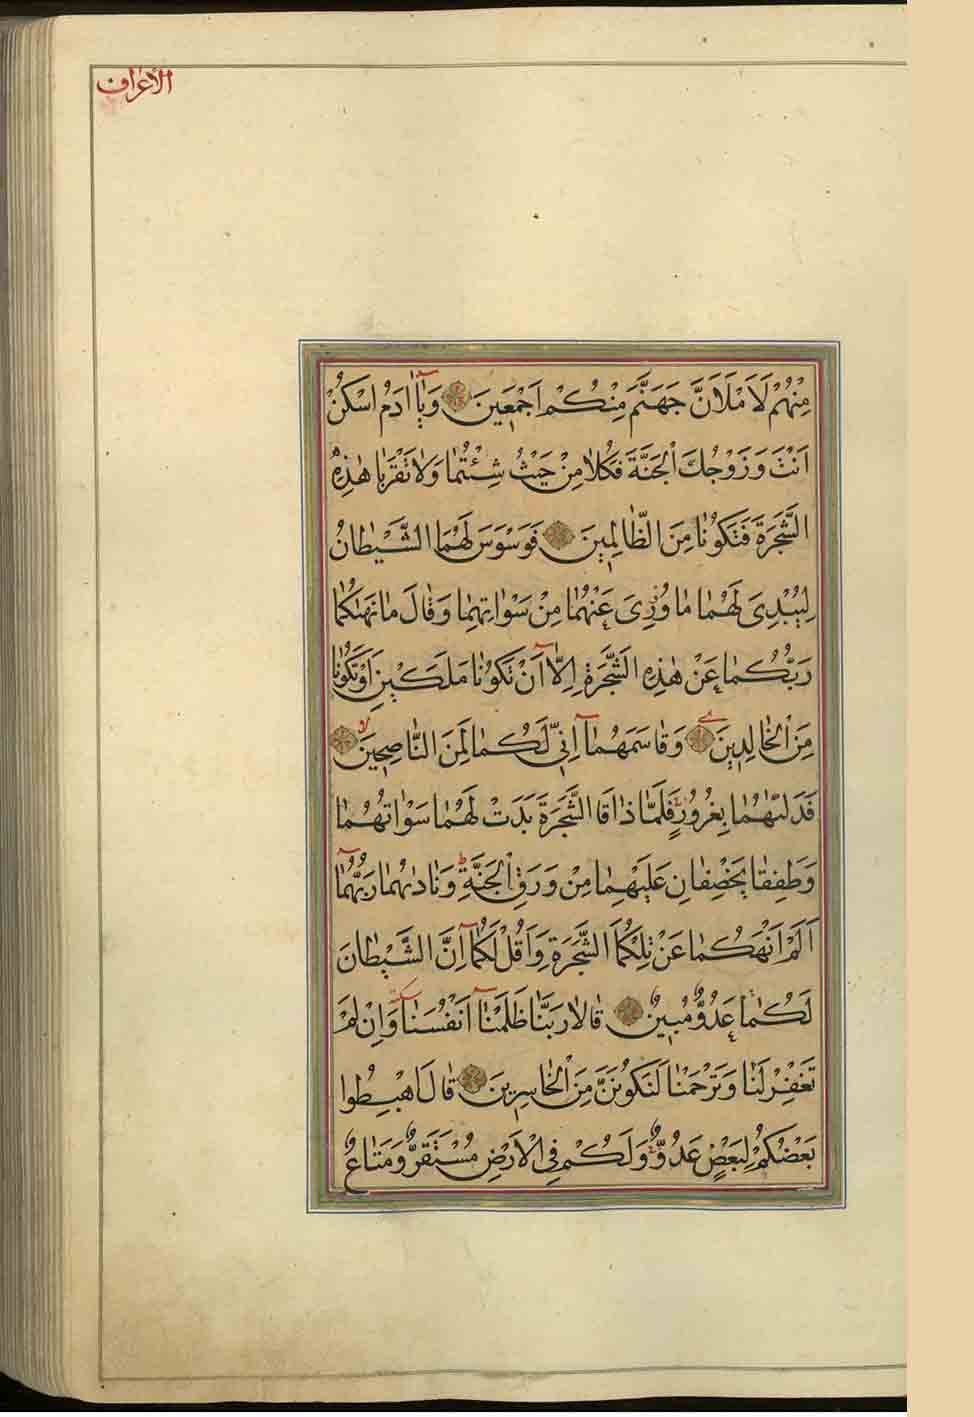 الأعراف
مِنْهُمْ لَاَمْلَاَنَّ جَهَنَّمَ مِنْكُمْ اَجْمَعِينَ وَيَٓا اٰدَمُ اسْكُنْ
اَنْتَ وَزَوْجُكَ الْجَنَّةَ فَكُلَا مِنْ حَيْثُ شِئْتُمَا وَلَا تَقْرَبَا هٰذِهِ
الشَّجَرَةَ فَتَكُونَا مِنَ الظَّالِمِينَ فَوَسْوَسَ لَهُمَا الشَّيْطَانُ
لِيُبْدِىَ لَهُمَا مَا وُرِىَ عَنْهُمَا مِنْ سَوْاٰتِهِمَا وَقَالَ مَا نَهٰيكُمَا
رَبُّكُمَا عَنْ هٰذِهِ الشَّجَرَةِ اِلَّٓا اَنْ تَكُونَا مَلَكَيْنِ اَوْ تَكُونَا
مِنَ الْخَالِدِينَ وَقَاسَمَهُمَٓا اِنِّى لَكُمَا لَمِنَ النَّاصِحِينَ
فَدَلّٰيهُمَا بِغُرُورٍ فَلَمَّا ذَاقَا الشَّجَرَةَ بَدَتْ لَهُمَا سَوْاٰتُهُمَا
وَطَفِقَا يَخْصِفَانِ عَلَيْهِمَا مِنْ وَرَقِ الْجَنَّةِ وَنَادٰيهُمَا رَبُّهُمَٓا
اَلَمْ اَنْهَكُمَا عَنْ تِلْكُمَا الشَّجَرَةِ وَاَقُلْ لَكُمَٓا اِنَّ الشَّيْطَانَ
لَكُمَا عَدُوٌّ مُبِينٌ قَالَا رَبَّنَا ظَلَمْنَٓا اَنْفُسَنَا وَاِنْ لَمْ
تَغْفِرْ لَنَا وَتَرْحَمْنَا لَنَكُونَنَّ مِنَ الْخَاسِرِينَ قَالَ اهْبِطُوا
بَعْضُكُمْ لِبَعْضٍ عَدُوٌّ وَلَكُمْ فِى الْاَرْضِ مُسْتَقَرٌّ وَمَتَاعٌ